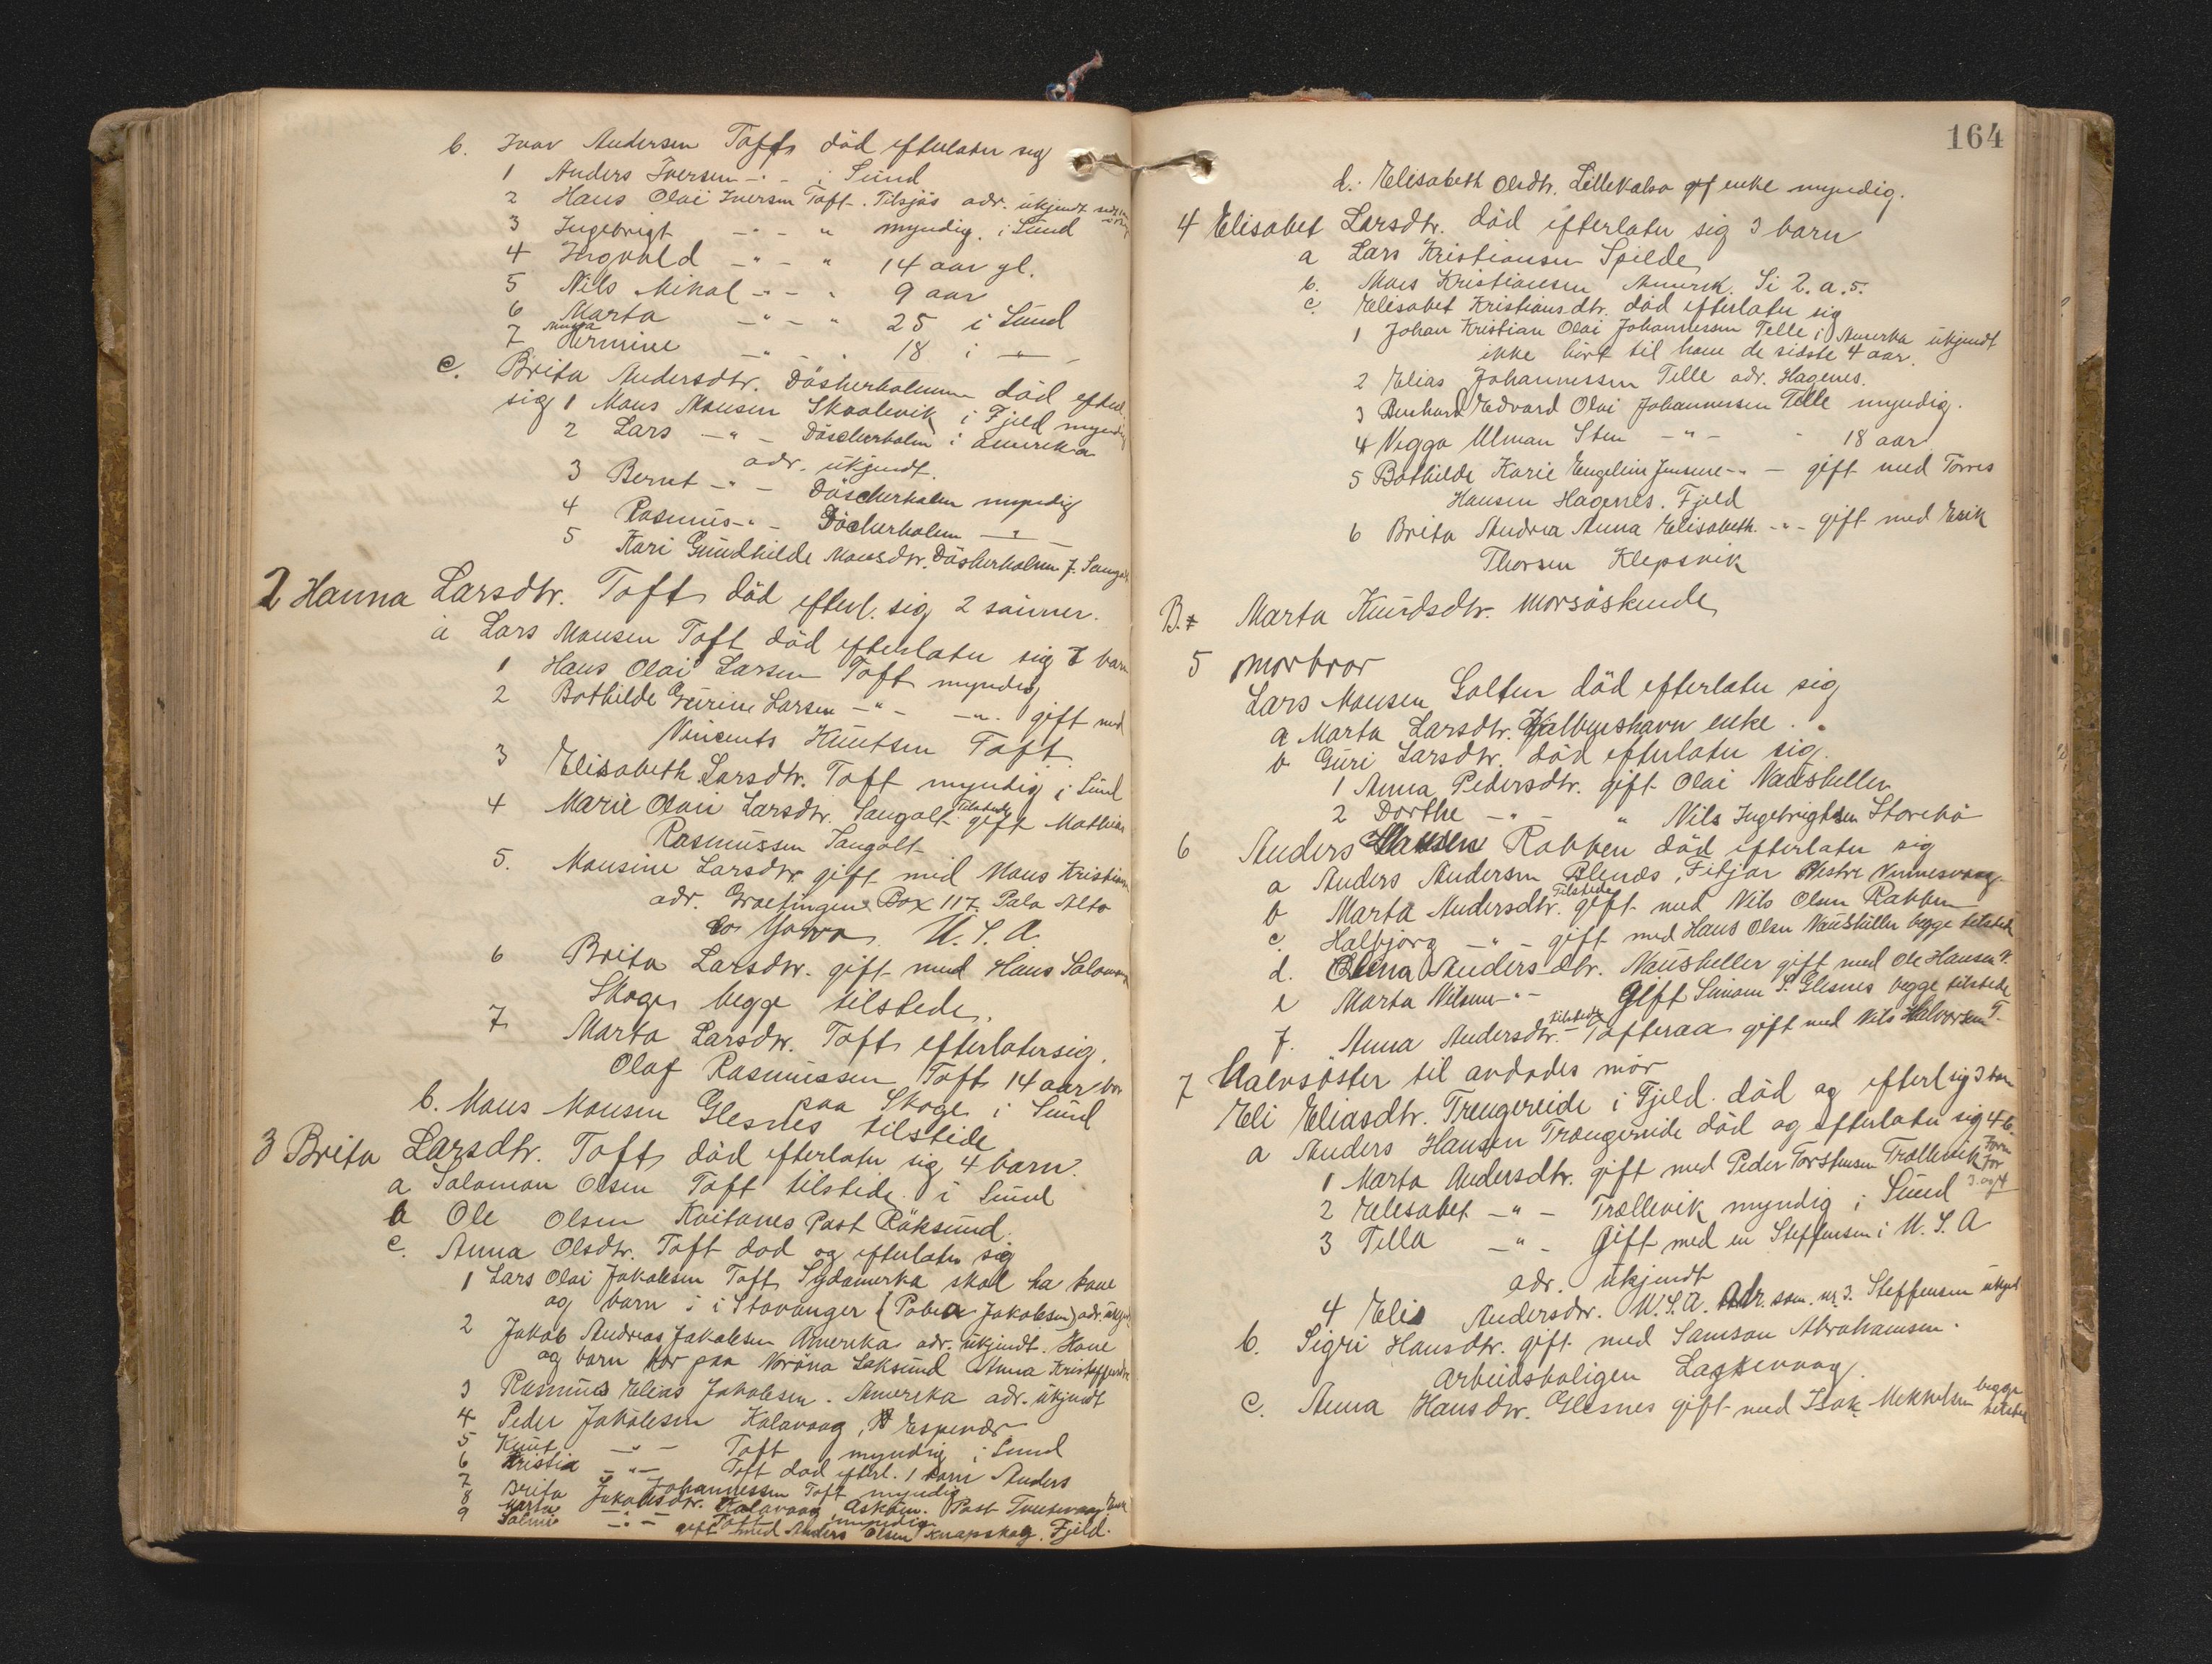 b. Ivar Andersen Toft död efterlater sig
1 Anders Iversen -"- i Sund
2 Hans Olai Iversen Toft. Tilsjös adr. ukjendt
3 Ingebrigt -"- " myndig. i Sund
4 Ingvald -"- " 14 aar gl.
5 Nils Mikal -"- " 9 aar
6 Marta -"- " 25 i Sund
7 Hermine -"- " 18 i -"-
c. Brita Andersdtr. Döskerholmen död efterl.
sig 1 Mons Monsen Skaalevik i Fjeld myndig
2 Lars -"- Döskerholm i Amerika
adr. ukjendt.
3 Bernt -"- Döskerholm myndig
4 Rasmus -"- Döskerholm -"-
5 Kari Gundhilde Monsdtr. Döskerholm
2 Hanna Larsdtr. Toft död efterl. sig 2 sönner.
a Lars Monsen Toft död efterlater sig 7 barn
1 Hans Olai Larsen Toft myndig
2 Bothilde Gurine Larsen -"- -"- gift med
Vincents Knutsen Toft.
3 Elisabeth Larsdtr. Toft myndig i Sund
4 Marie Olai Larsdtr. Tangolt Tilstede gift Mathias
Rasmussen Tangolt
5. Monsine Larsdtr gift med Mons Kristian
adr. Graefingen Box 117. Palo Alto
U.S.A.
6 Brita Larsdtr. gift med Hans Salomon
Skoge begge tilstede.
7 Marta Larsdtr. Toft efterlater sig.
Olaf Rasmussen Toft 14 aar bor
paa Skoge i Sund
b. Mons Monsen Glesnes tilstede
3 Brita Larsdtr. Toft död efterlater sig 4 barn.
a Salomon Olsen Toft tilstede i Sund
b Ole Olsen Kvitanes Post Röksund.
c. Anna Olsdtr. Toft död og efterlater sig
1 Lars Olai Jakobsen Toft Sydamerka skal ha kone
og barn i Stavanger (Jakobsen) adr. ukjendt
2 Jakob Andreas Jakobsen Amerika adr. ukjendt. Kone
og barn bor paa Noröna Laksund Anna
3 Rasmus Elias Jakobsen. Amerika adr. ukjendt
4 Peder Jakobsen Kalavaag, Espevær
5 Knut -"- Toft myndig i Sund
6 Kristia -"- Toft död efterl. 1 barn Anders
Johannessen Toft myndig
7 Brita Jakobsdtr. Kalavaag, Asköen. Post Tveitevaag
8 Marta -"- Toft myndig
9 Salmie -"- gift med Anders Olsen Knapskog. Fjeld.
164
d. Elisabeth Olsdtr. Lillekalsö enke myndig.
4 Elisabet Larsdtr. död efterlater sig 3 barn
a Lars Kristiansen Spilde
b. Mons Kristiansen Amerik. Se 2. a. 5.
c. Elisabet Kristiansdtr. död efterlater sig
1 Johan Kristian Olai Johannessen Telle i Amerka ukjendt
ikke hört til ham de sidste 4 aar.
2 Elias Johannessen Telle adr. Hagenes.
3 Bernhard Edvard Olai Johannessen Telle myndig.
4 Viggo Ulman Sten -"- - 18 aar
5 Bothilde Karie Engeline Jensene -"- gift med Torres
Hansen Hagenes. Fjeld
6 Brita Andrea Anna Elisabeth. -"- gift med Erik
Thorsen Klepsvik
B. Marta Knudsdtr. Morsöskende
5 morbror
Lars Monsen Golten död efterlater sig
a Marta Larsdtr. enke.
b Guri Larsdtr. död efterlater sig.
1 Anna Pedersdtr. gift Olai Naushellen
2 Dorthe -"- " Nils Ingebrigtsen Storebö
6 Anders Hansen Rabben död efterlater sig
a Anders Andersen Alenæs, Fitjar Vestre Vinnesvaag
b Marta Andersdtr. Tilstede gift med Nils Olsen Rabben
c. Halbjörg -"- gift med Hans Olsen Naushellen begge tilstede
d. Elina Andersdtr. Naushellen gift med Ole Hansen N.
e Marta Nilsen -"- Gift Simon S. Glesnes begge tilstede
f. Anna Andersdtr. tilstede Tofteraa gift med Nils Halvorsen T.
7 Halvsöster til avdödes mor
Eli Eliasdtr. Trengereide i Fjeld. död og efterl sig 3 barn
a Anders Hansen Trængereide död og efterlater sig 4 b.
1 Marta Andersdtr. gift med Peder Torstensen Trællevik
2 Elisabet -"- Trællevik myndig i Sund
3 Tilla -"- Gift med en Steffensen i U.S.A
adr. ukjendt
4 Elis Andersdtr. U.S.A. Adr. som. nr. 3. Steffensen ukjent
b. Sigri Hansdtr. gift med Samson Abrahamsen.
Arbeidsboligen Laksevaag
c. Anna Hansdtr. Glesnes gift med Isak Mikkelsen begge tilstede